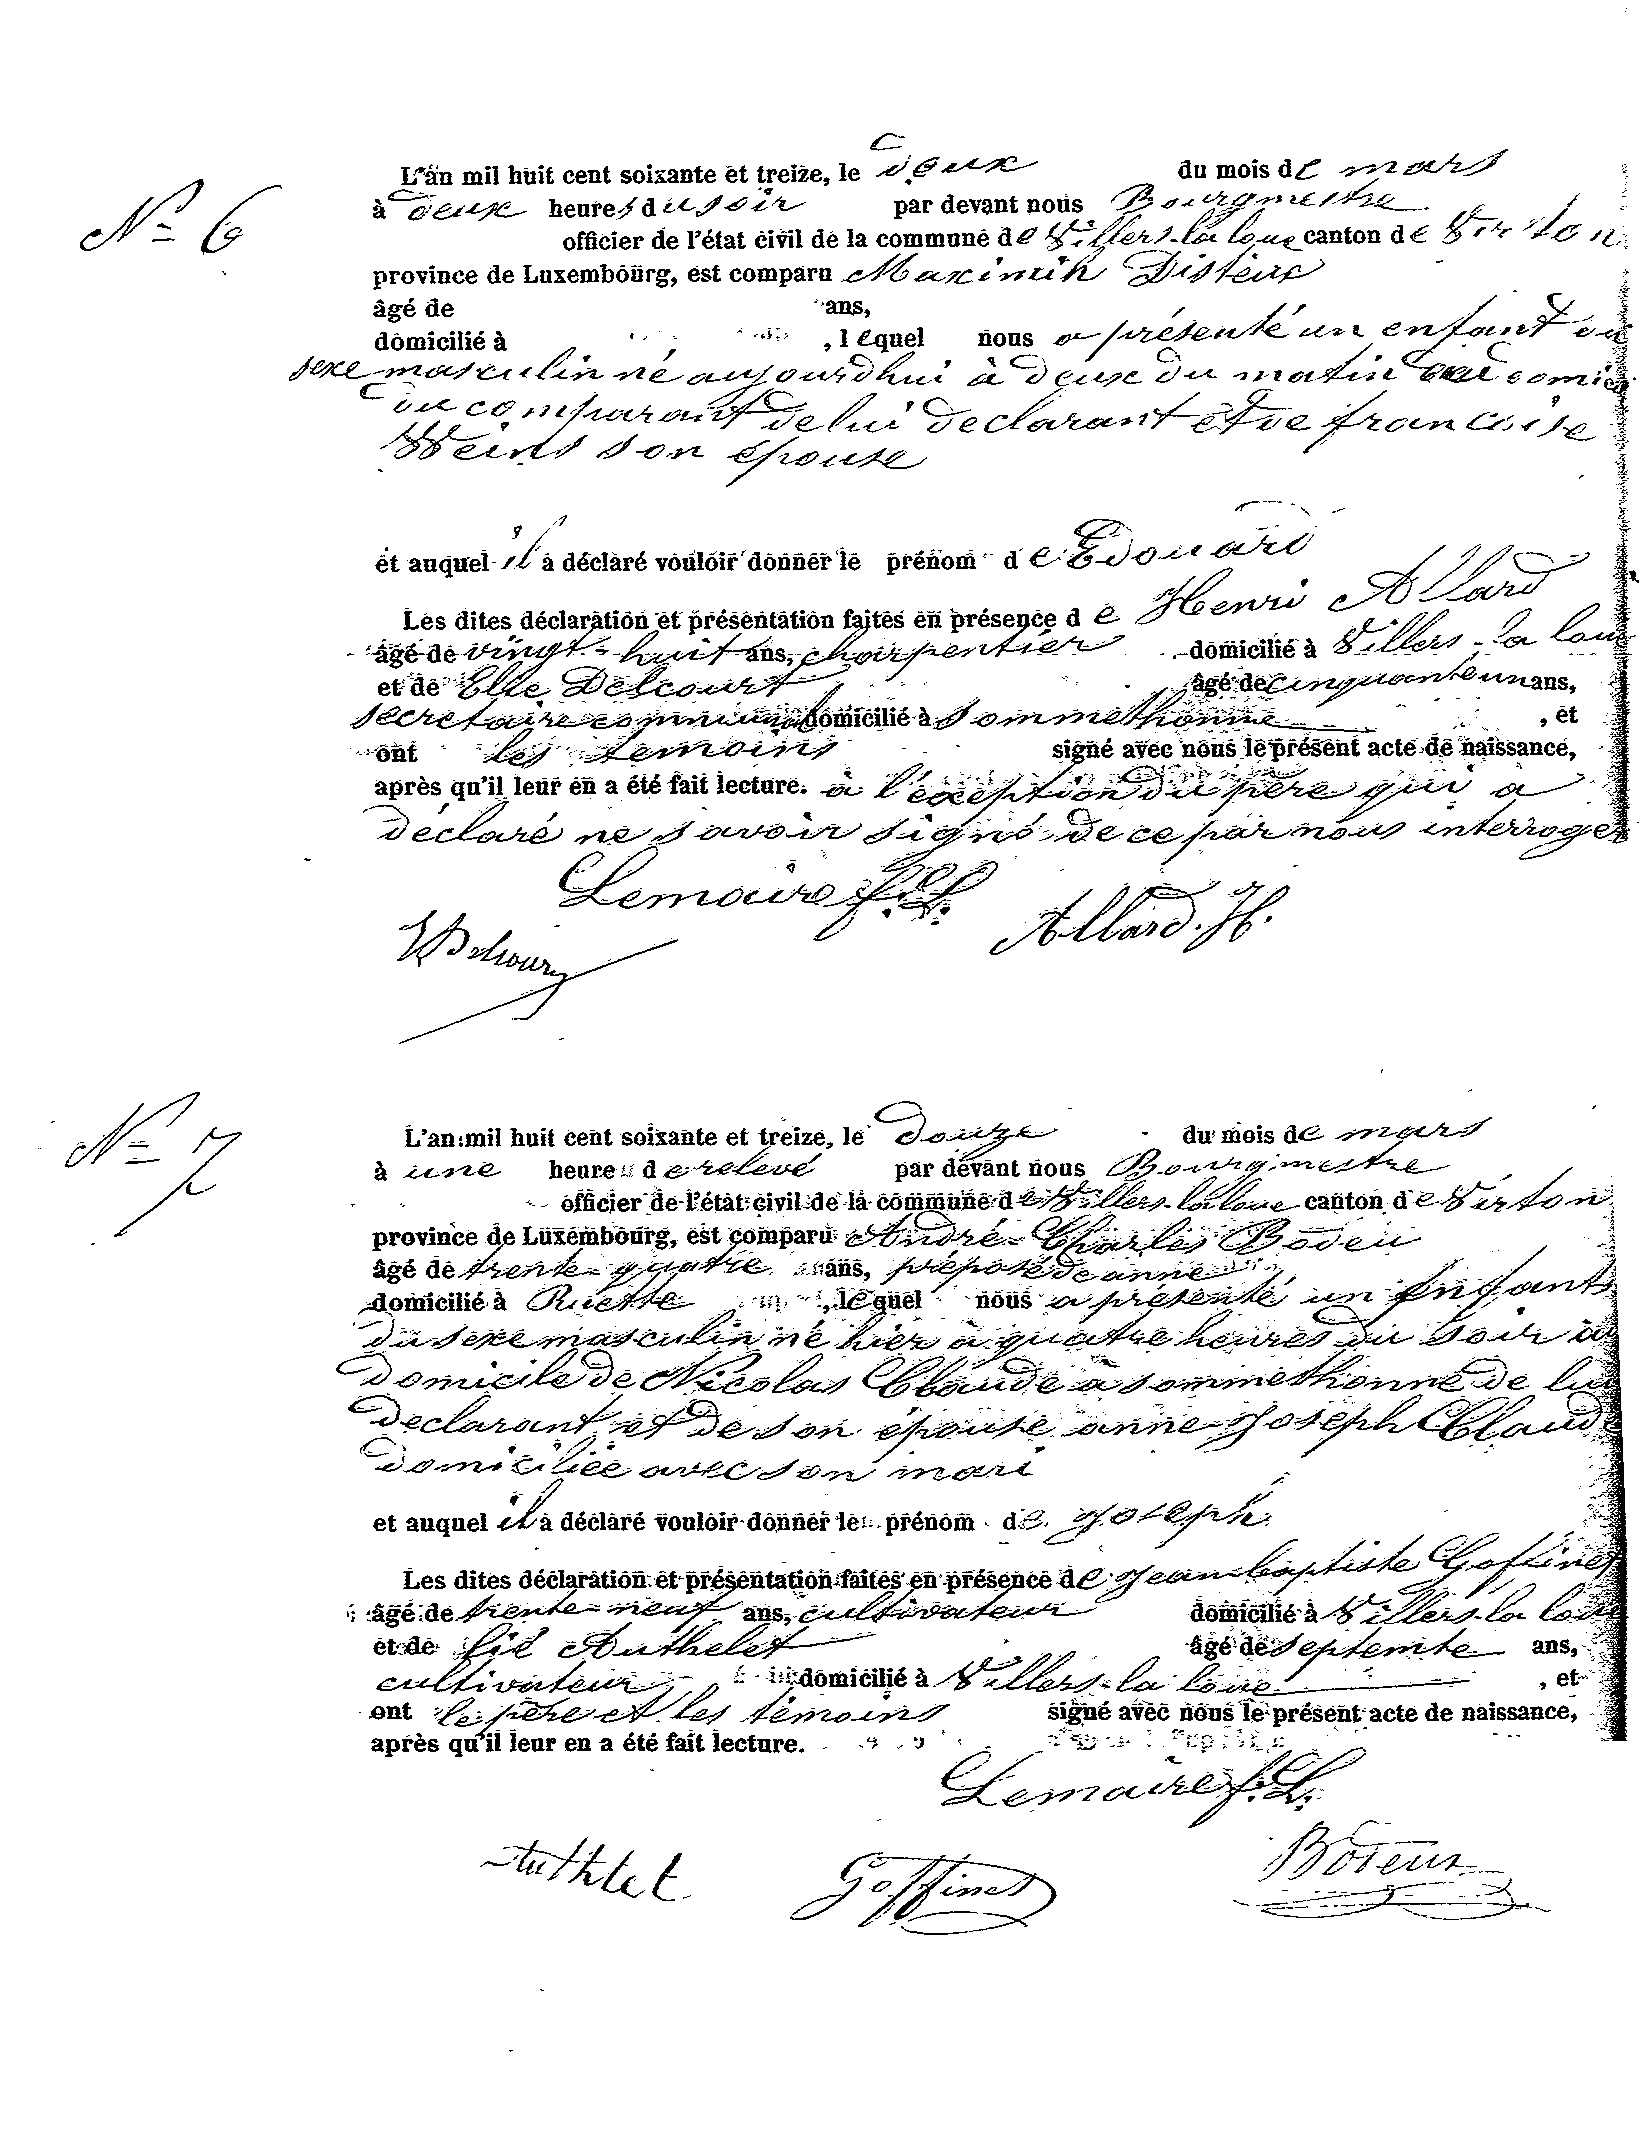 N° 6
L'an mil huit cent soixante et treize, le deux du mois de mars
à deux heures du soir par devant nous Bourgmestre
officier de l'état civil de la commune de Villers-la loue canton de Virton
province de Luxembourg, est comparu Maximin Disteux
âgé de ans,
domicilié à , lequel nous a présenté un enfant du
sexe masculin né aujourdhui à deux du matin au domicile
du comparant de lui declarant et de francoise
Weins son épouse
et auquel il a déclaré vouloir donner le prénom de Edouard
Les dites déclaration et présentation faites en présence de Henri Allard
âgé de vingt-huit ans, charpentier domicilié à Villers-la loue
et de Elie Delcourt âgé de cinquante un ans,
secretaire communal domicilié à Sommethonne , et
ont les temoins signé avec nous le présent acte de naissance,
après qu'il leur en a été fait lecture. à l'éxception du père qui a
déclaré ne savoir signé de ce par nous interroger
Lemaire f. L.
EDelcourt Allard. H.
N° 7
L'an mil huit cent soixante et treize, le douze du mois de mars
à une heure de relevé par devant nous Bourgmestre
officier de l'état civil de la commune de Villers-la loue canton de Virton
province de Luxembourg, est comparu André-Charles Bodeu
âgé de trente-quatre ans, préposé de anne
domicilié à Ruette , lequel nous a présenté un enfant
du sexe masculin né hier à quatre heures du soir au
domicile de Nicolas Claude à sommethonne de lui
declarant et de son épouse anne-Joseph Claude
domiciliée avec son mari
et auquel il a déclaré vouloir donner le prénom de Joseph
Les dites déclaration et présentation faites en présence de Jean baptiste Goffinet
âgé de trente-neuf ans, cultivateur domicilié à Villers-la loue
et de fié Authelet âgé de septente ans,
cultivateur domicilié à Villers-la loue , et
ont le père et les témoins signé avec nous le présent acte de naissance,
après qu'il leur en a été fait lecture.
Lemaire f. L.
Authelet Goffinet Bodeux